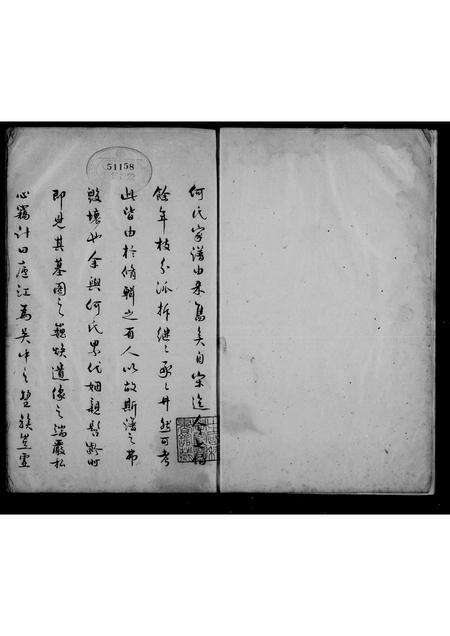 何氏家譜由來舊矣自宋迄今
餘年枝分派析繼繼承承井然可考
此皆由於脩輯之有人以故斯譜之弗
毀壞也余與何氏累代姻親髫齡時
即見其墓圖之巍煥遺像之端嚴私
心竊計曰廬江為吳中之望族
51158